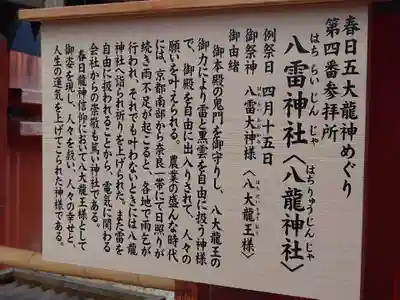 春日五大龍神めぐり
第四番参拝所
八雷神社〈八龍神社〉
はちらいじんじゃ
はちりゅうじんじゃ
例祭日 四月十五日
御祭神 八雷大神様〈八大龍王様〉
御由緒
御本殿の鬼門を御守りし、八大龍王の
御力により雷と黒雲を自由に扱う神様
で、御殿を自由に出入りされて、人々の
願いを叶えられる。農業の盛んな時代
には、京都南部から奈良一帯にて日照りが
続き雨不足が起こると、各地で雨乞が
行われ、それでも叶わないときには八龍
神社へ詣り祈りを上げられた。また雷を
自由に扱われることから、電気に関わる
会社からの崇敬も篤い神社である。
春日龍神信仰において八大龍王様として
御姿を現し、人々を救い、人々の幸せと、
人生の運気を上げてくだされた神様である。